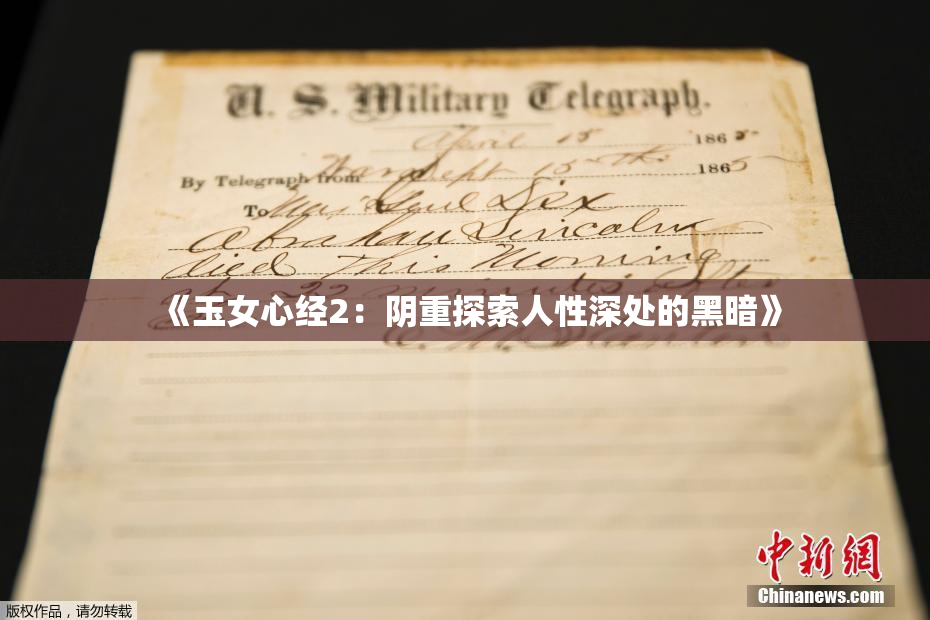 U. S. Military Telegraph.
April 15 1865
By Telegraph from War Dept 15th 1865
To Maj Genl Dix
Abraham Lincoln
died This Morning
at 22 minutes after
《玉女心经2：阴重探索人性深处的黑暗》
E. M. Stanton
中新网
Chinanews.com
版权作品，请勿转载